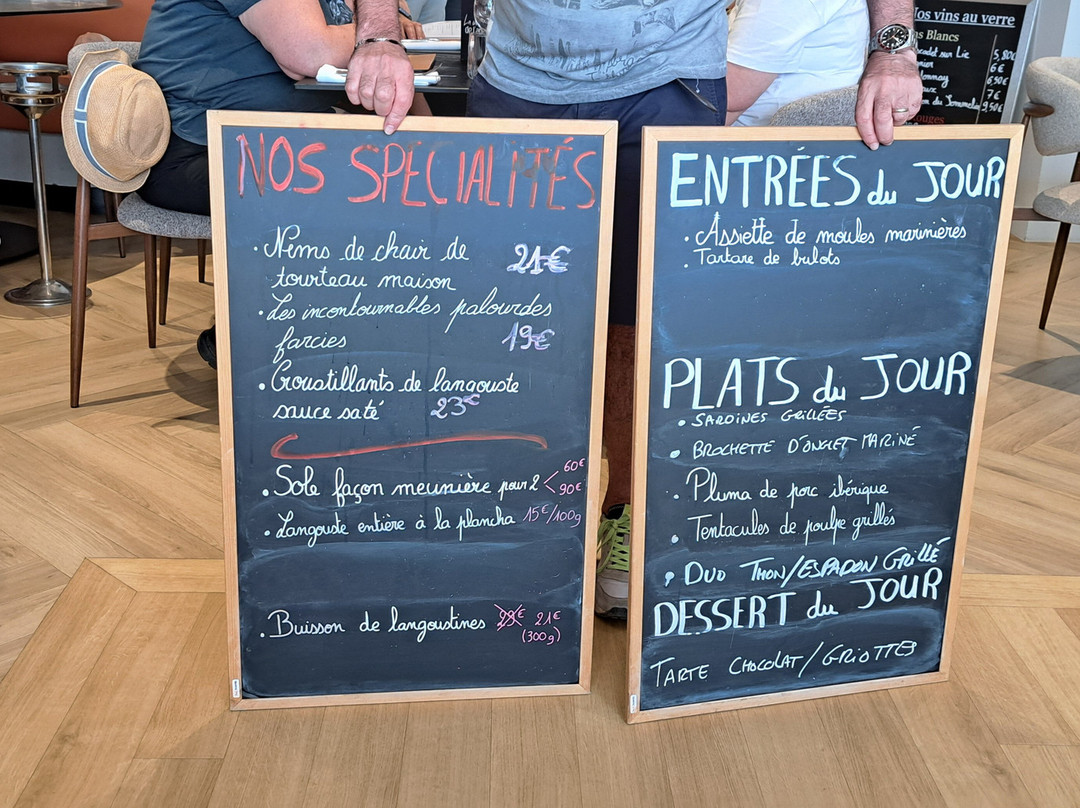 NOS SPECIALITÉS
. Nems de chair de 21€
tourteau maison
. Les incontournables palourdes
farcies 19€
. Croustillants de langouste
sauce saté 23€
. Sole façon meunière pour 2 < 60€
90€
. Langouste entière à la plancha 15€/100g
. Buisson de langoustines 21€
(300g)
ENTRÉES du JOUR
. Assiette de moules marinières
. Tartare de bulots
PLATS du JOUR
• SARDINES GRILLÉES
• BROCHETTE D'ONGLET MARINÉ
. Pluma de porc ibérique
. Tentacules de poulpe grillés
• DUO THON/ESPADON GRILLÉ
DESSERT du JOUR
TARTE CHOCOLAT/GRIOTTES
Nos vins au verre
Blancs
sur Lie 5,80€
6€
6,50€
7€
du Sommelier 9,50€
Rouges